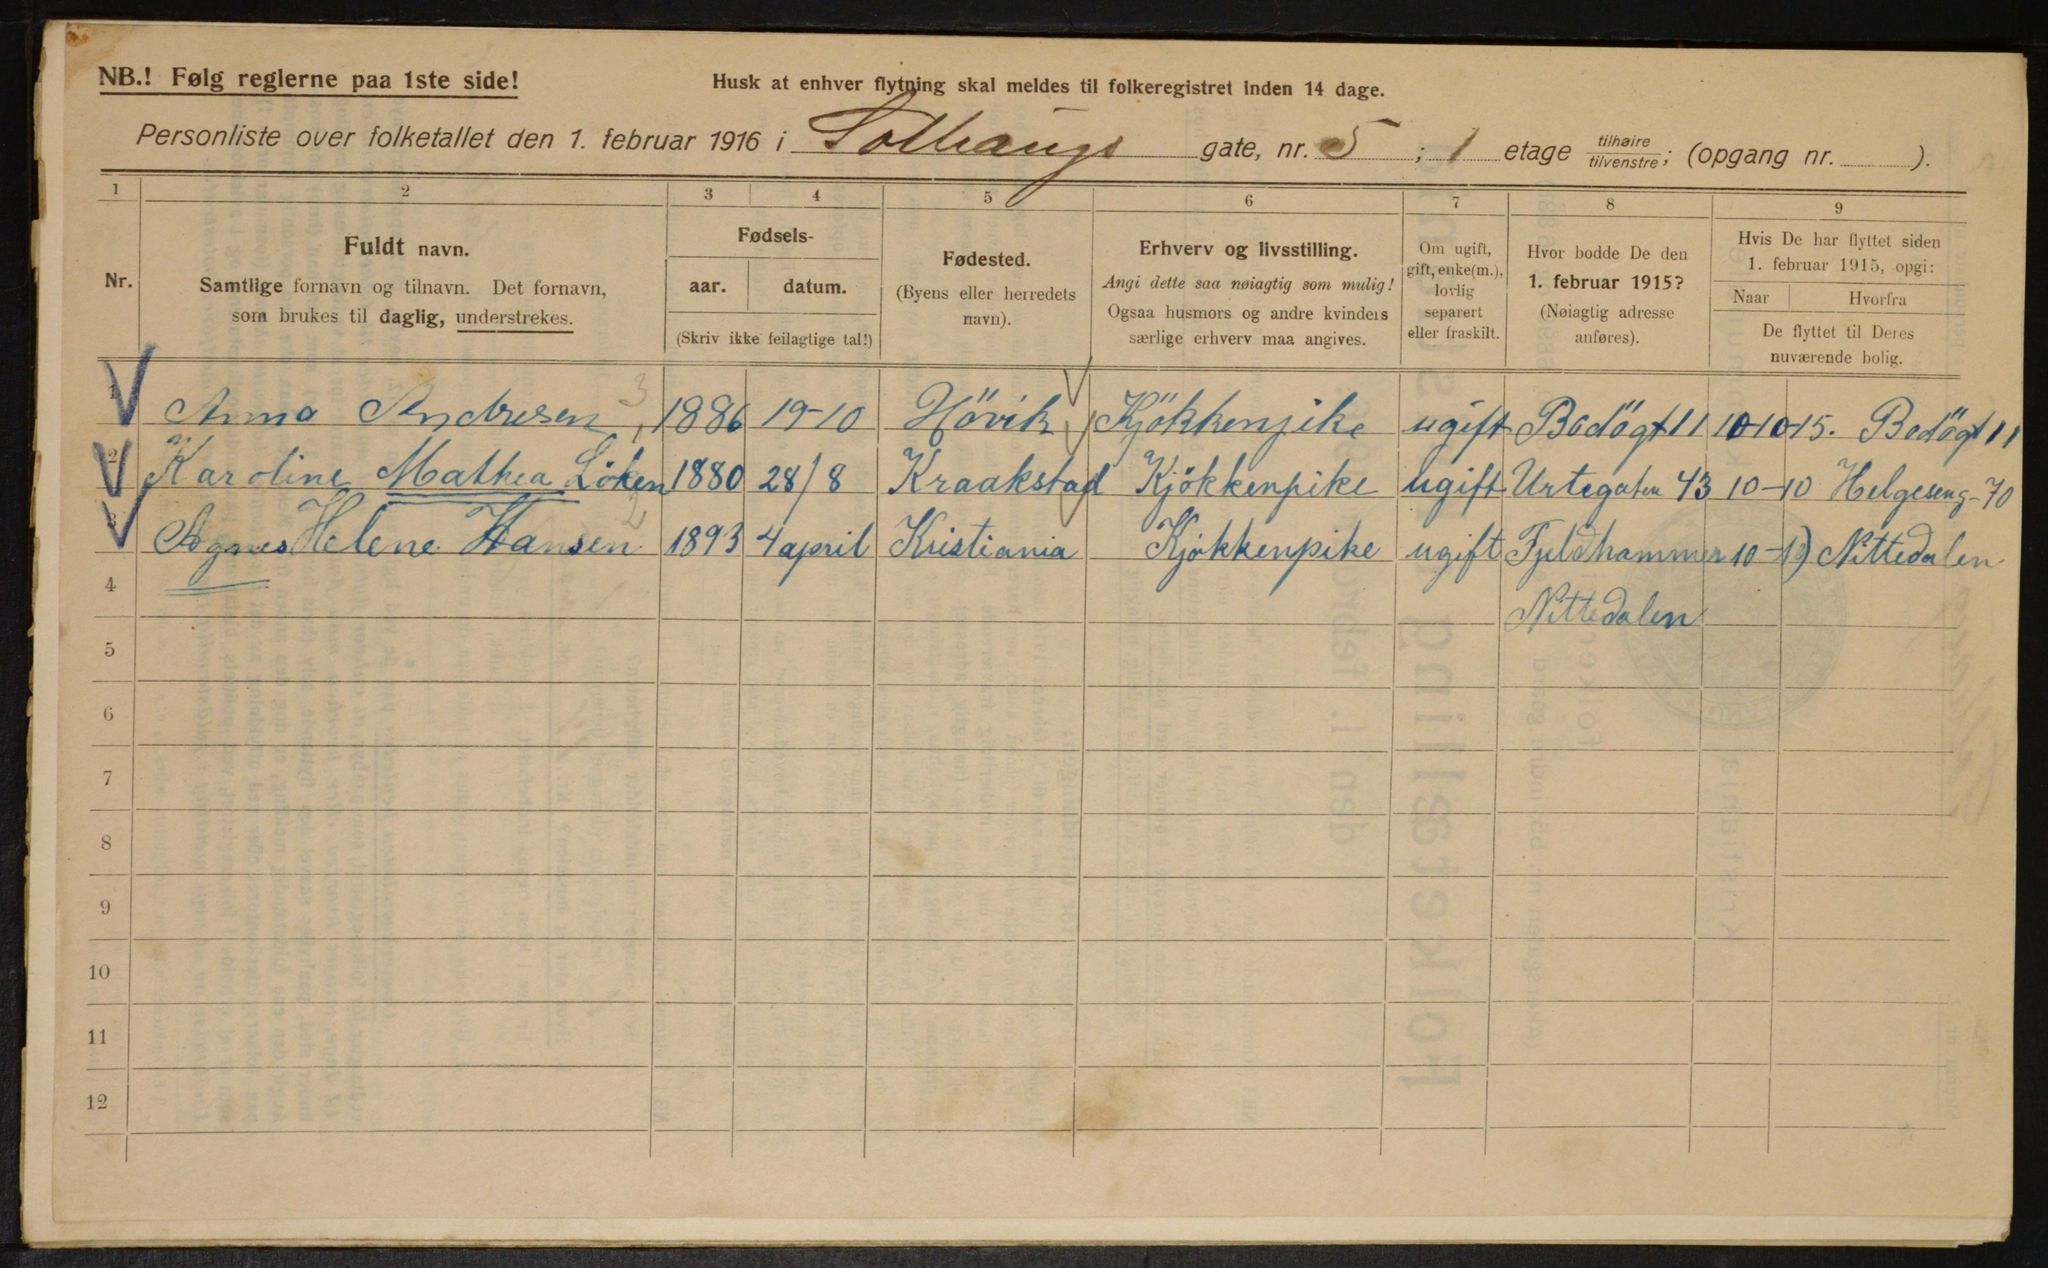 NB.! Følg reglerne paa 1ste side!
Husk at enhver flytning skal meldes til folkeregistret inden 14 dage.
Personliste over folketallet den 1. februar 1916 i Solhaugs gate, nr. 5; 1 etage tilhøire/tilvenstre; (opgang nr. ).
1 2 3 4 5 6 7 8 9
Nr.
Fuldt navn.
Samtlige fornavn og tilnavn. Det fornavn,
som brukes til daglig, understrekes.
Fødsels-
aar. datum.
(Skriv ikke feilagtige tal!)
Fødested.
(Byens eller herredets
navn).
Erhverv og livsstilling.
Angi dette saa nøiagtig som mulig!
Ogsaa husmors og andre kvinders
særlige erhverv maa angives.
Om ugift,
gift, enke(m.),
lovlig
separert
eller fraskilt.
Hvor bodde De den
1. februar 1915?
(Nøiagtig adresse
anføres).
Hvis De har flyttet siden
1. februar 1915, opgi:
Naar Hvorfra
De flyttet til Deres
nuværende bolig.
1 Anna Andresen 1886 19-10 Hövik Kjökkenpike ugift Bodögt 11 10-10-15. Bodögt 11
2 Karoline Mathea Löken 1880 28/8 Kraakstad Kjökkenpike ugift Urtegaten 43 10-10 Helgeseng-70
3 Agnes Helene Hansen 1893 4 april Kristiania Kjökkenpike ugift Fjeldhammer 10-10 Nittedalen
4 Nittedalen
5
6
7
8
9
10
11
12